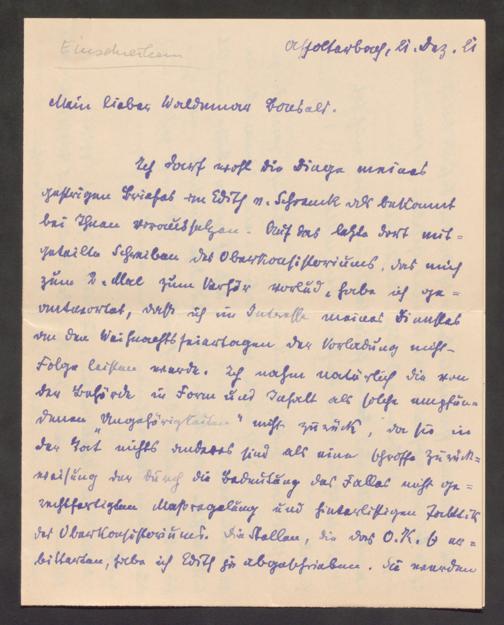 Einschreiben
Affolterbach, 21. Dez. 21
Mein lieber Waldemar Bonsels.
Ich darf wohl die Dinge meines
gestrigen Briefes an Edith v. Schrenck als bekannt
bei Ihnen voraussetzen. Auf das letzte dort mit-
geteilte Schreiben des Oberkonsistoriums, das mich
zum 2. Mal zum Verhör vorlud, habe ich ge-
antwortet, daß ich im Interesse meines Dienstes
an den Weihnachtsfeiertagen der Vorladung nicht
Folge leisten werde. Ich nahm natürlich die von
der Behörde in Form und Inhalt als solche empfun-
denen "Ungehörigkeiten" nicht zurück, da sie in
der Tat nichts anderes sind als eine schroffe Zurück-
weisung der durch die Bedeutung des Falles nicht ge-
rechtfertigten Massregelung und hinterlistigen Taktik
des Oberkonsistoriums. Die Stellen, die das O.K. so er-
bitterten, habe ich Edith ja abgeschrieben. Sie werden